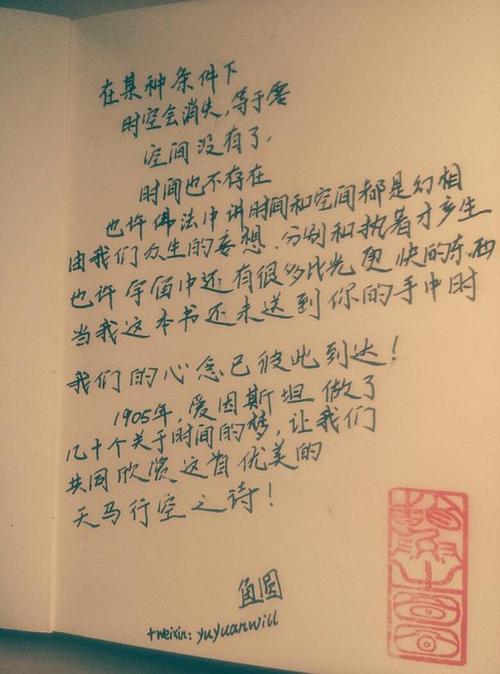 在某种条件下
时空会消失，等于零
空间没有了，
时间也不存在
也许佛法中讲时间和空间都是幻相
由我们众生的妄想、分别和执着才产生
也许宇宙中还有很多比光更快的东西
当我这本书还未送到你的手中时
我们的心念已彼此到达！
1905年，爱因斯坦做了
几十个关于时间的梦，让我们
共同欣赏这首优美的
天马行空之诗！
鱼圆
+weixin: yuyuanwill